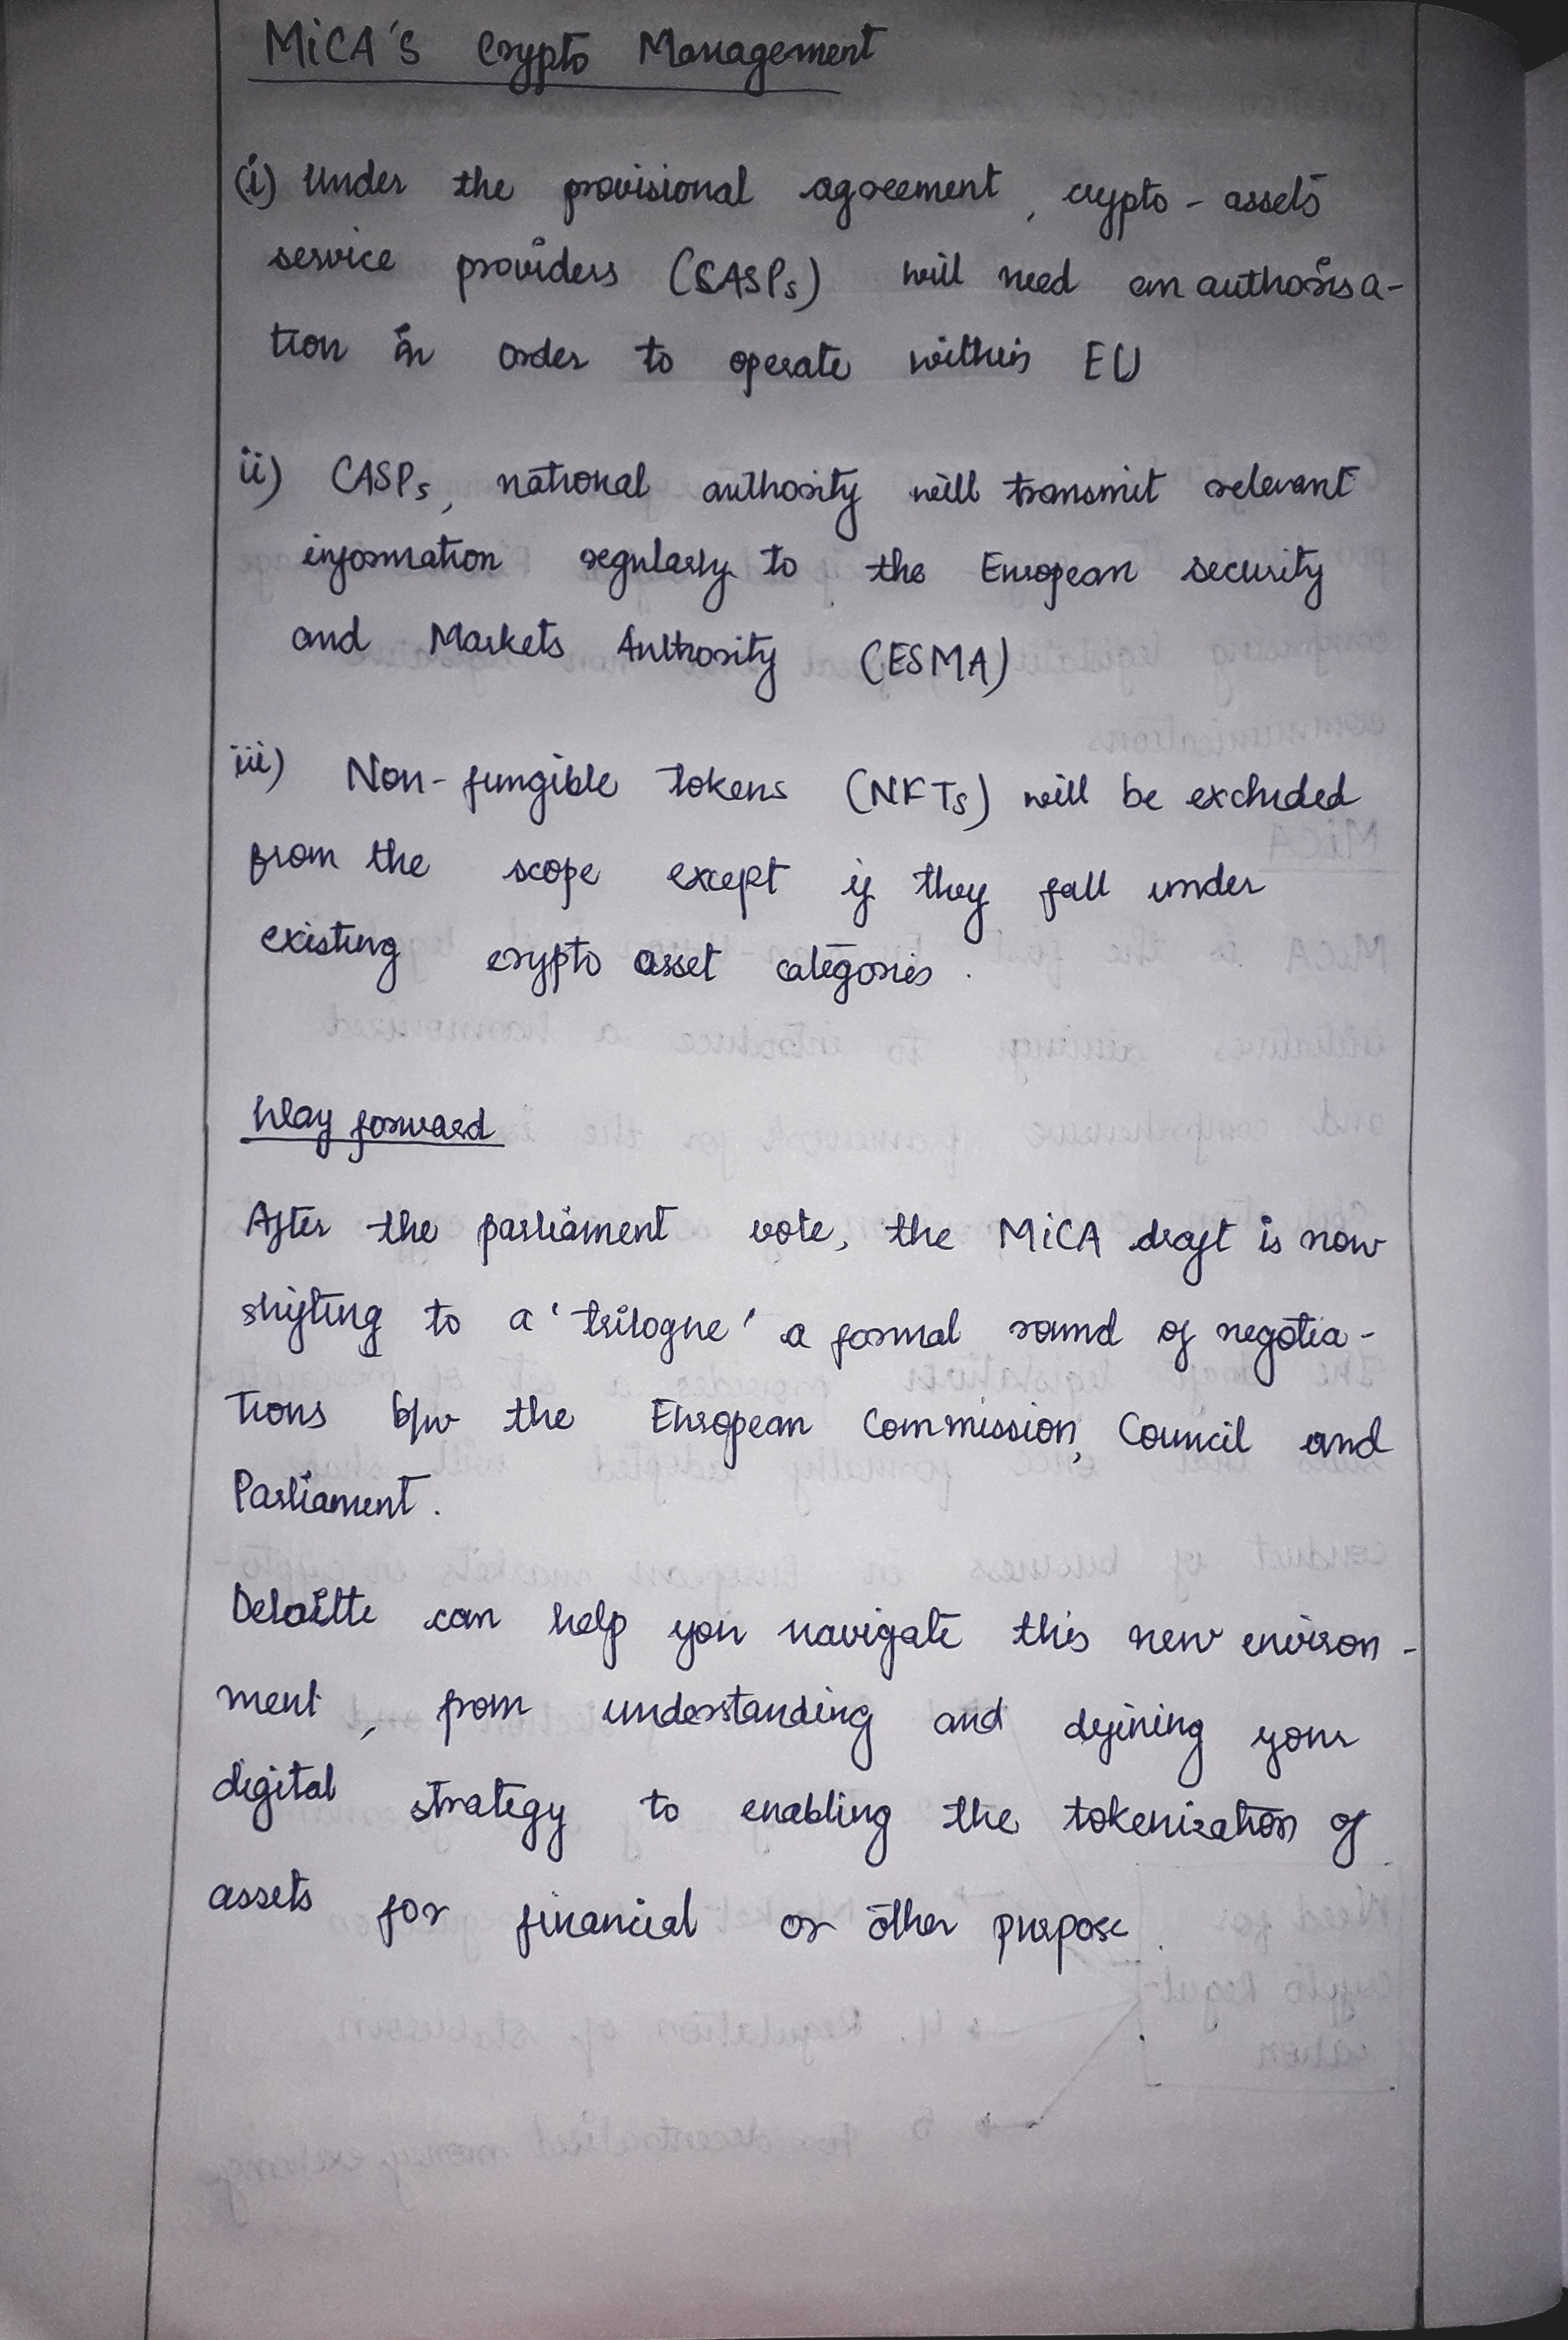 MiCA's Crypto Management
(i) Under the provisional agreement, crypto-assets
service providers (CASPs) will need an authorisa-
tion in order to operate within EU
ii) CASPs, national authority will transmit relevant
information regularly to the European security
and Markets Authority (ESMA)
iii) Non-fungible tokens (NFTs) will be excluded
from the scope except if they fall under
existing crypto asset categories.
Way forward
After the parliament vote, the MiCA draft is now
shifting to a 'trilogue' a formal round of negotia-
tions b/w the European Commission, Council and
Parliament.
Deloitte can help you navigate this new environ-
ment, from understanding and defining your
digital strategy to enabling the tokenization of
assets for financial or other purpose.